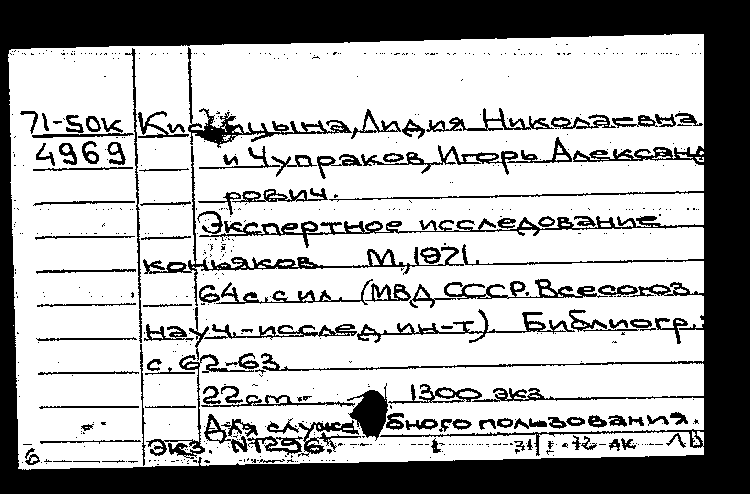 71-50к Лидия Николаевна
4969 и Чупраков, Игорь Александ
рович.
Экспертное исследование
коньяков. М., 1971.
64с. с ил. (МВД СССР. Всесоюз.
науч.-исслед. ин-т). Библиогр.:
с. 62-63.
22cm. 1300 экз.
Для служебного пользования.
Экз. N1296. 1
6